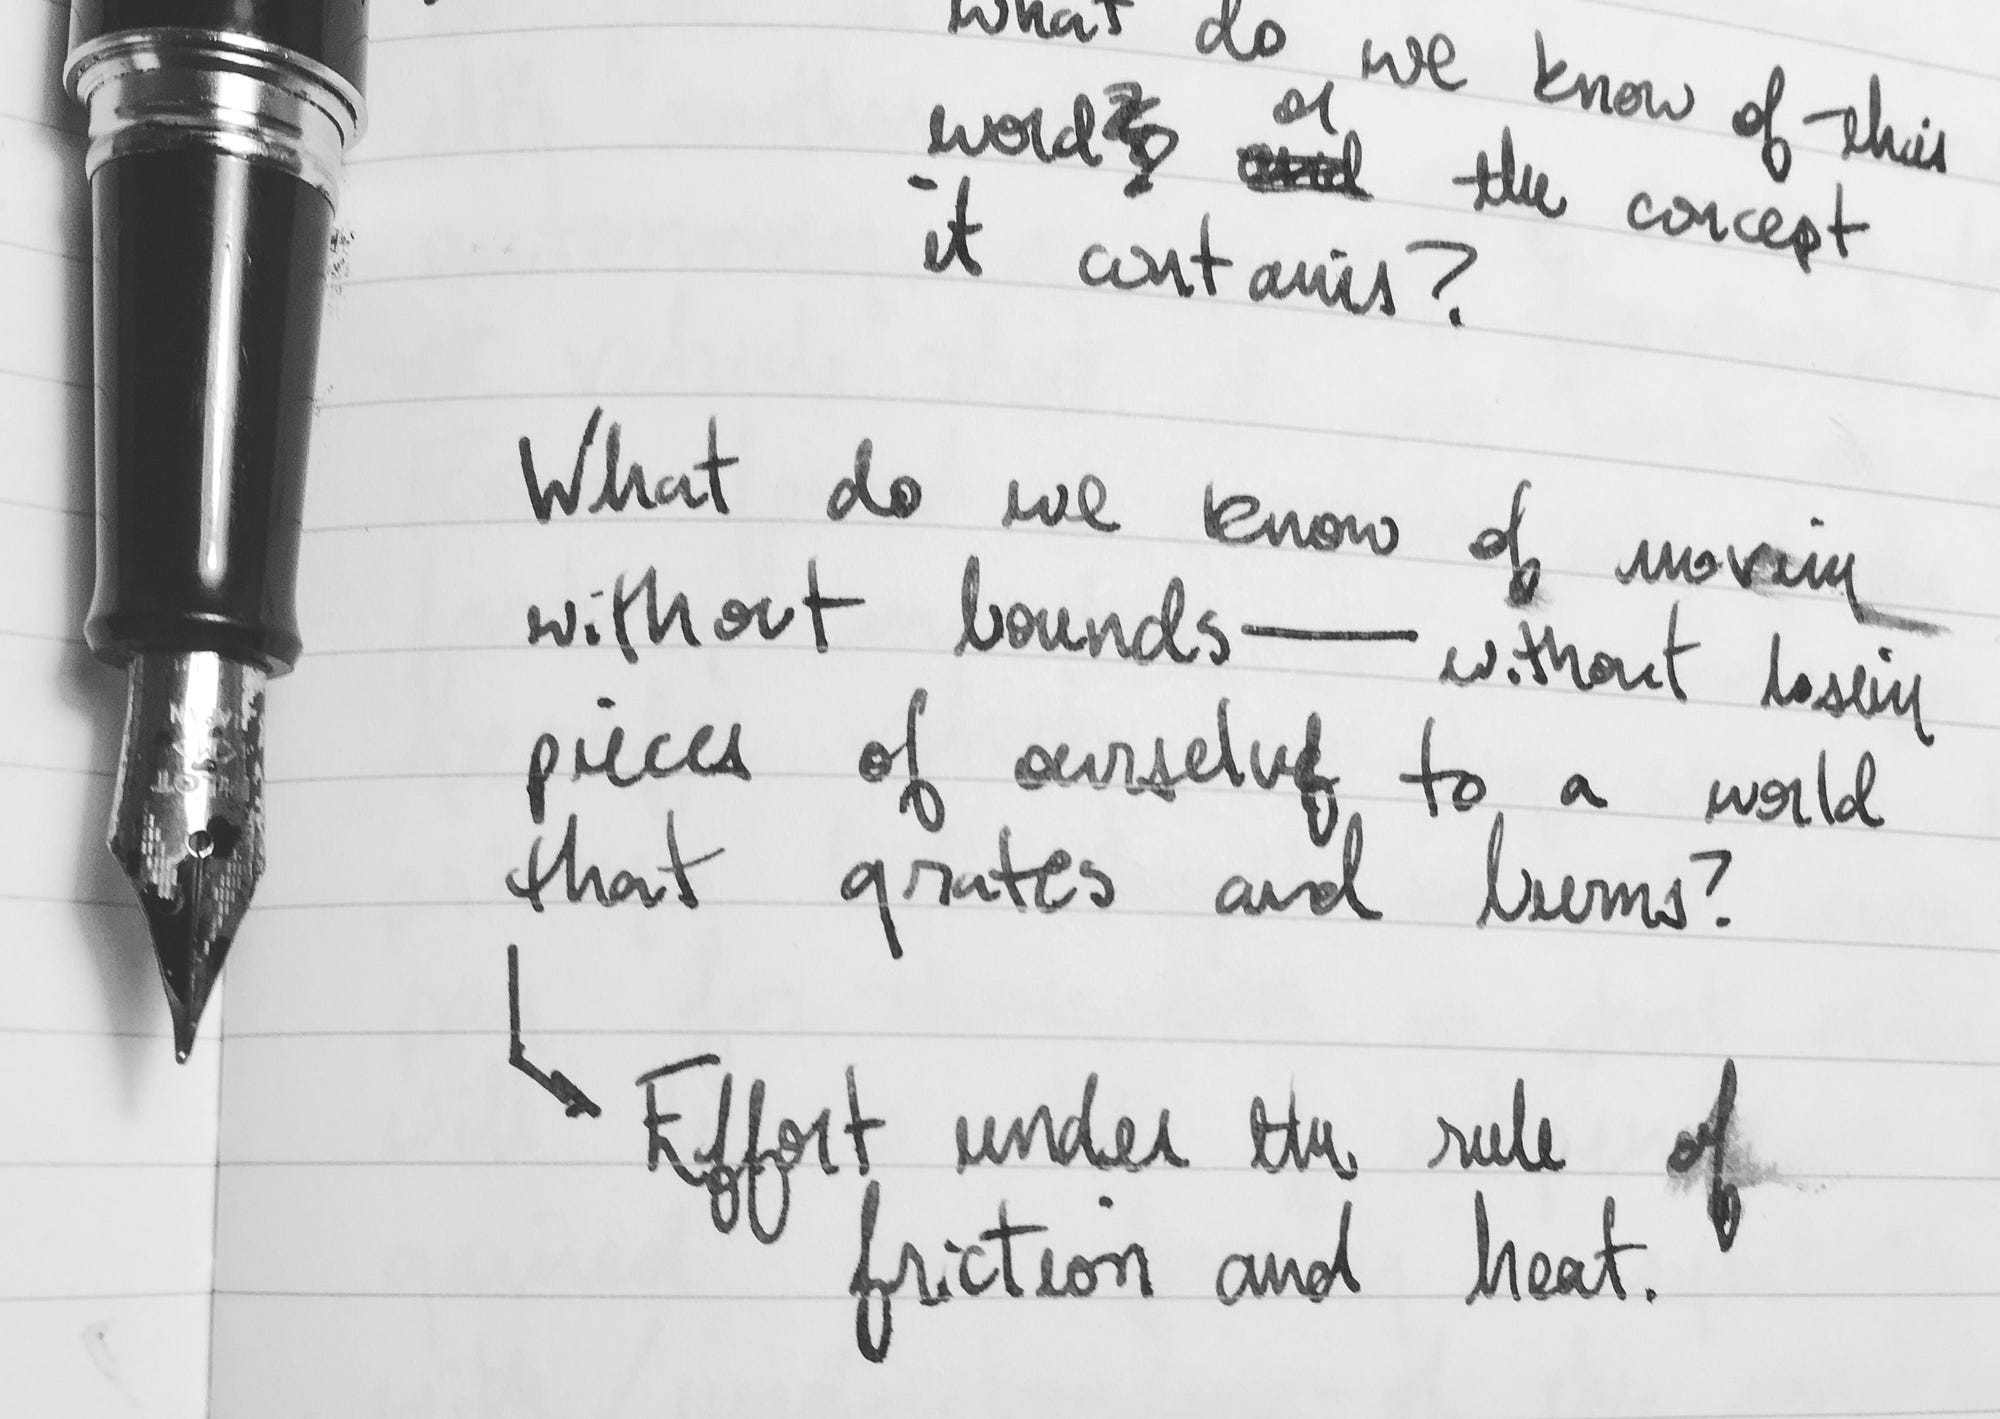 What do we know of this
word? or
and the concept
it contains?
What do we know of moving
without bounds — without losing
pieces of ourself to a world
that grates and burns?
Effort under the rule of
friction and heat.